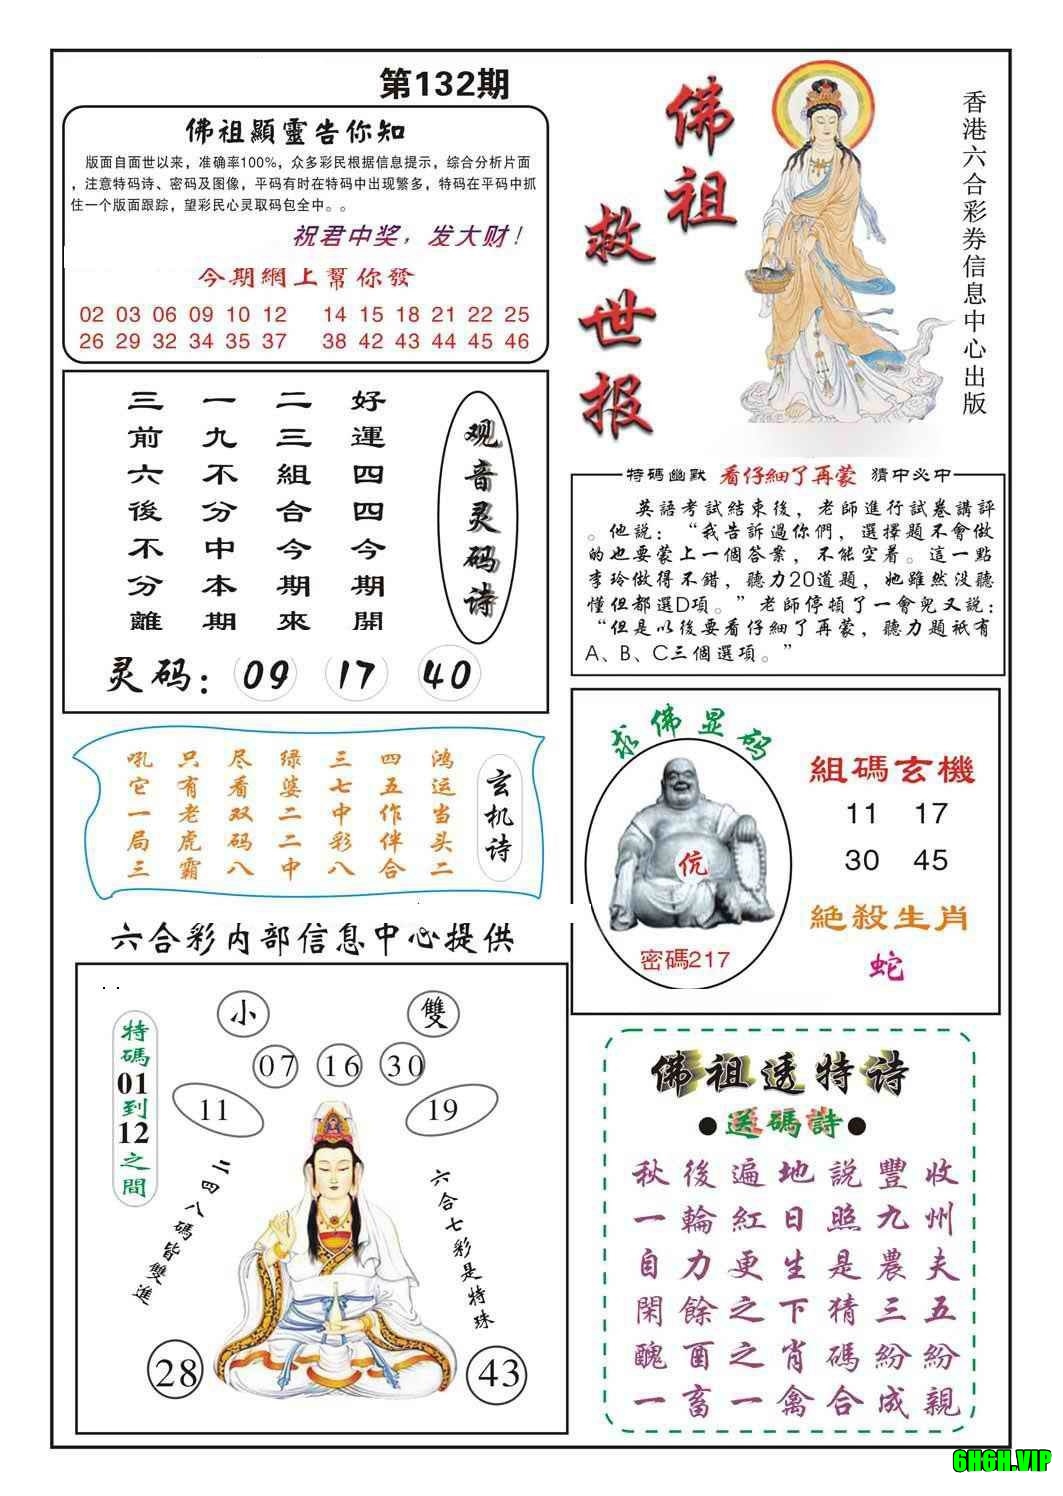 第132期
佛祖顯靈告你知
版面自面世以来，准确率100%，众多彩民根据信息提示，综合分析片面
，注意特码诗、密码及图像，平码有时在特码中出现繁多，特码在平码中抓
住一个版面跟踪，望彩民心灵取码包全中。。
祝君中奖，发大财！
今期網上幫你發
02 03 06 09 10 12 14 15 18 21 22 25
26 29 32 34 35 37 38 42 43 44 45 46
佛祖
救世报
香港六合彩券信息中心出版
观音灵码诗
好運四四今期開
二三組合今期來
一九不分中本期
三前六後不分離
灵码：09 17 40
特碼幽默 看仔細了再蒙 猜中必中
英語考試結束後，老師進行試卷講評
。他説：“我告訴過你們，選擇題不會做
的也要蒙上一個答案，不能空着。這一點
李玲做得不錯，聽力20道題，她雖然没聽
懂但都選D項。”老師停頓了一會兒又説：
“但是以後要看仔細了再蒙，聽力題衹有
A、B、C三個選項。”
玄机诗
鸿运当头二
四五作伴合
三七中彩八
绿婆二二中
尽看双码八
只有老虎霸
吼它一局三
求佛显码
伉
密碼217
組碼玄機
11 17
30 45
絶殺生肖
蛇
六合彩内部信息中心提供
小 雙
07 16 30
11 19
特碼01到12之間
二四八碼皆雙進
六合七彩是特珠
28 43
佛祖透特诗
●送碼詩●
秋後遍地説豐收
一輪紅日照九州
自力更生是農夫
閑餘之下猜三五
醜酉之肖碼紛紛
一畜一禽合成親
6H6H.VIP